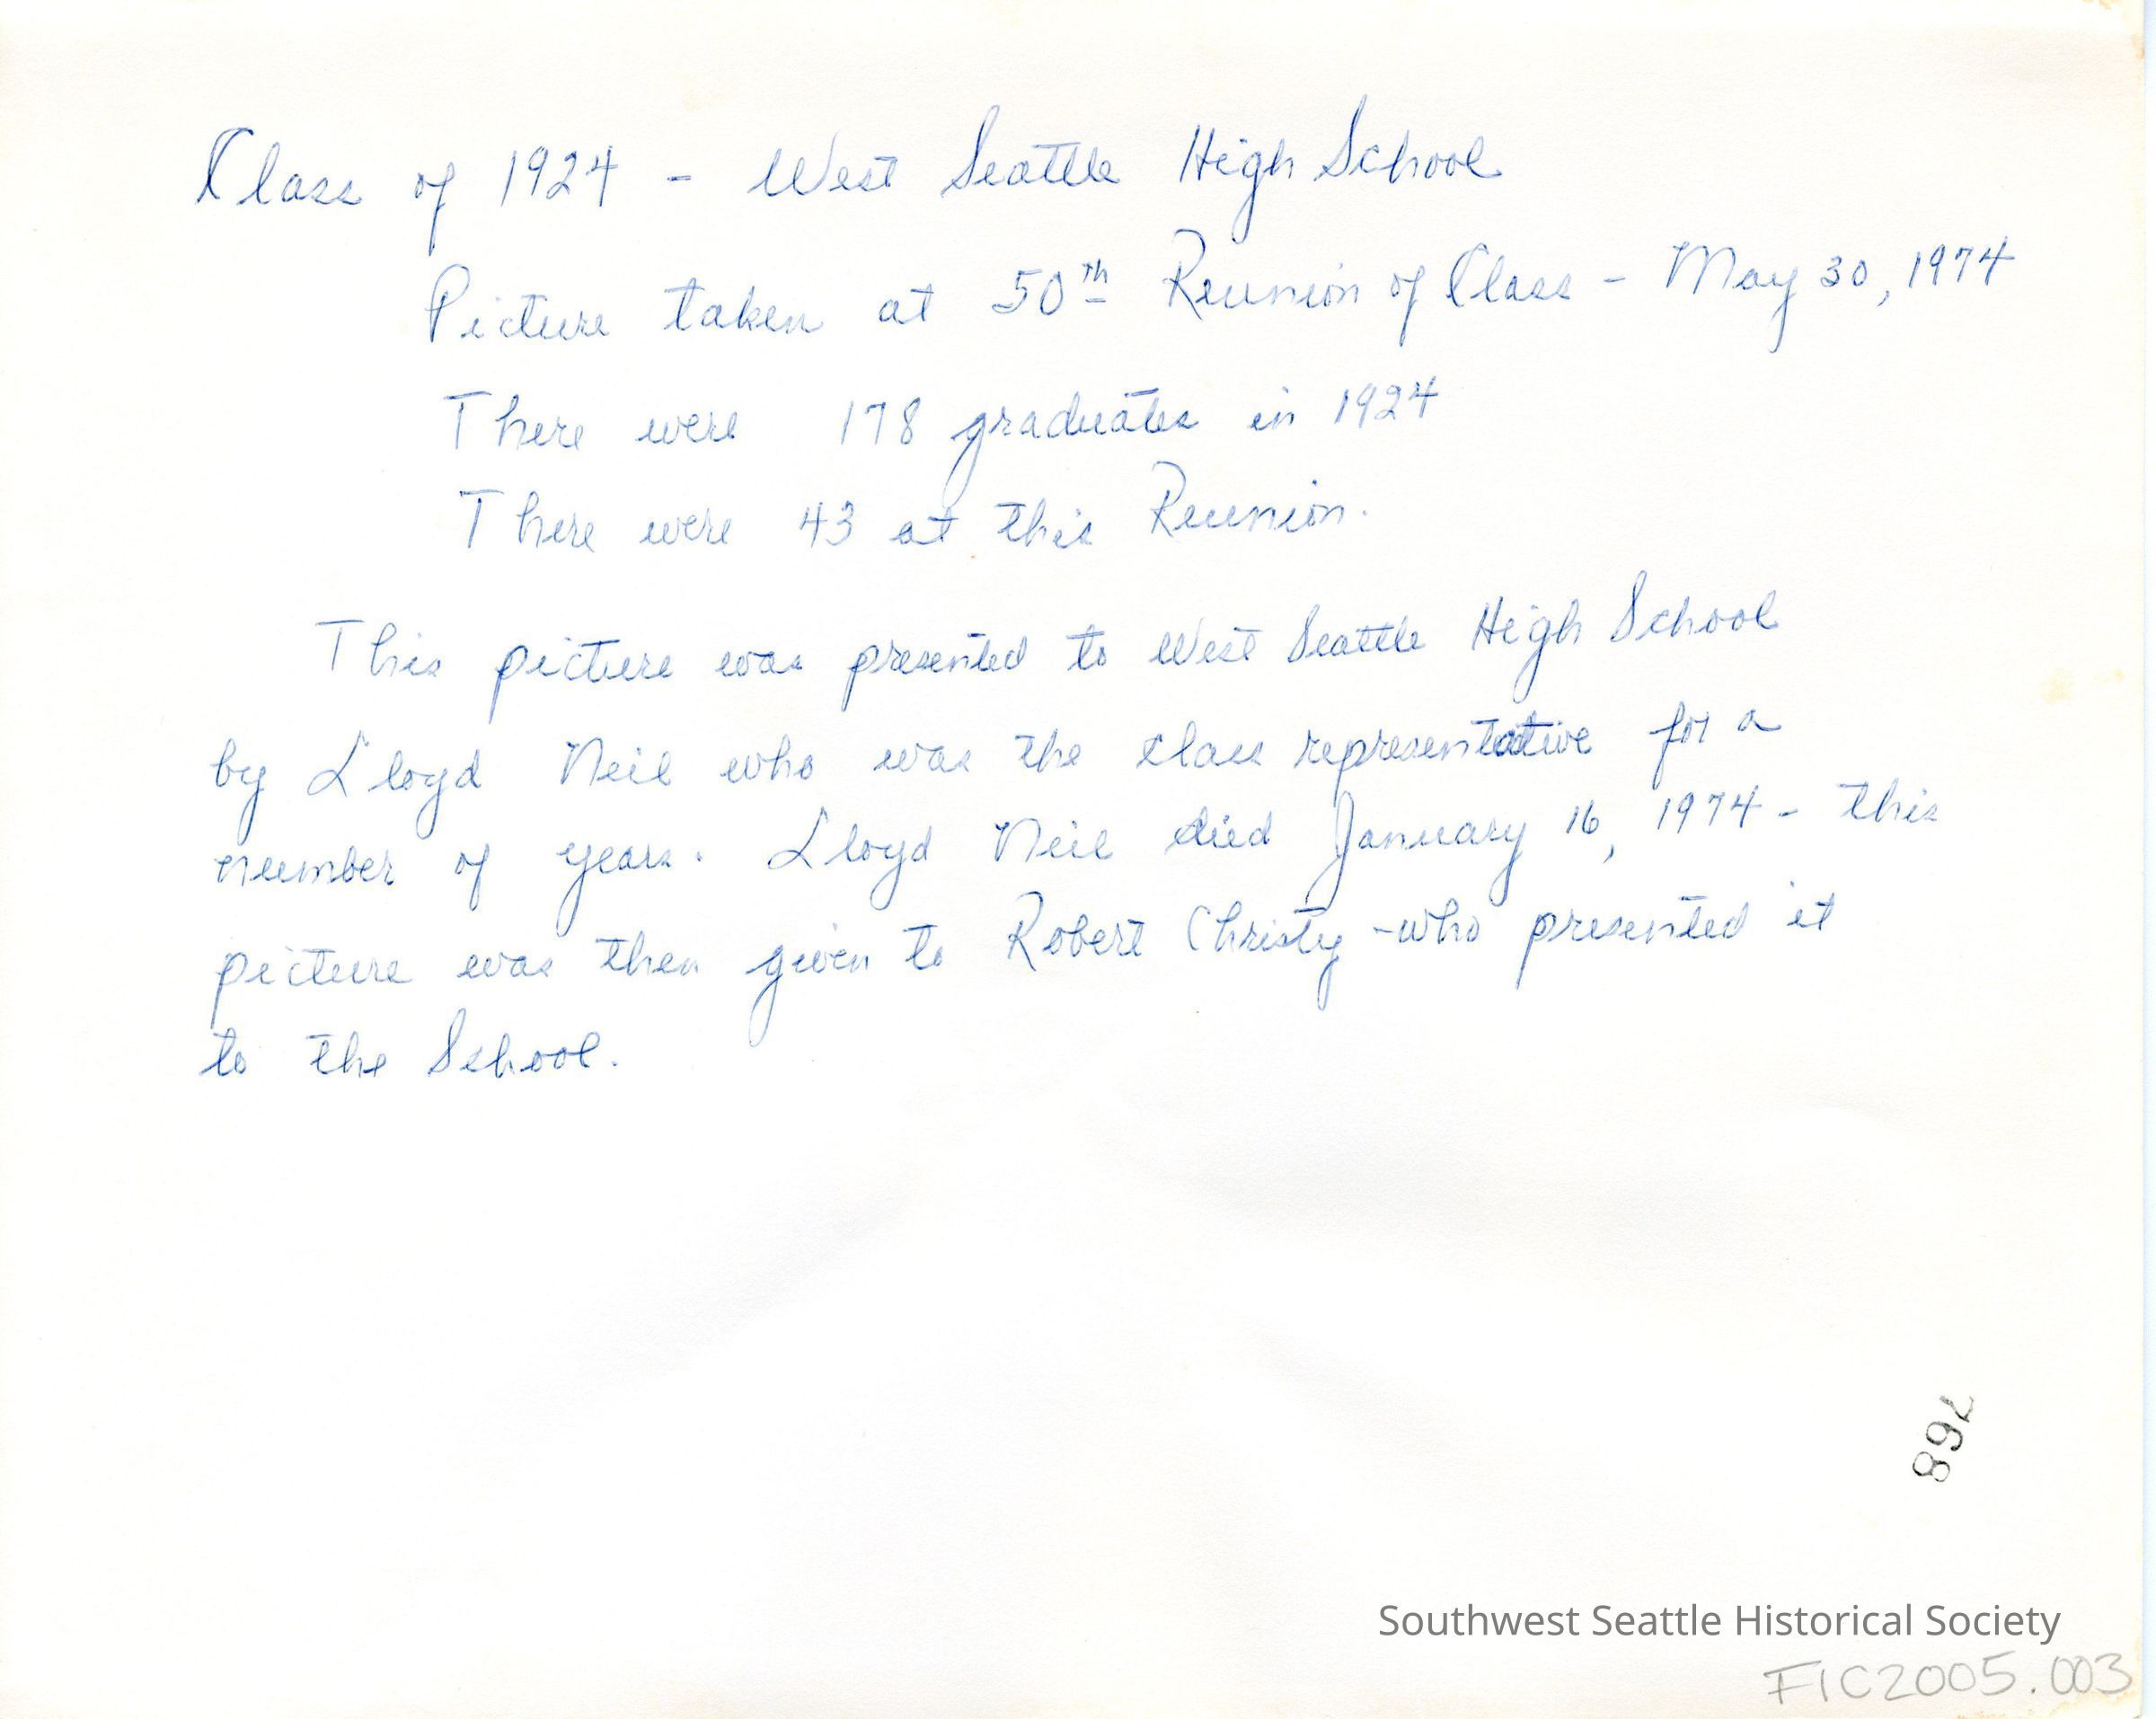 Class of 1924 - West Seattle High School
Picture taken at 50th Reunion of Class - May 30, 1974
There were 178 graduates in 1924
There were 43 at this Reunion.
This picture was presented to West Seattle High School
by Lloyd Neil who was the class representative for a
number of years. Lloyd Neil died January 16, 1974 - this
picture was then given to Robert Christy - who presented it
to the School.
768
Southwest Seattle Historical Society
FIC2005.003